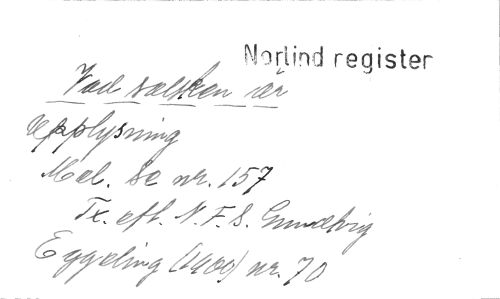 Norlind register
Vad solsken är
upplysning
Mel. se nr. 157
Tx. eft. N.F.S. Grundtvig
Eggeling (1900) nr. 70